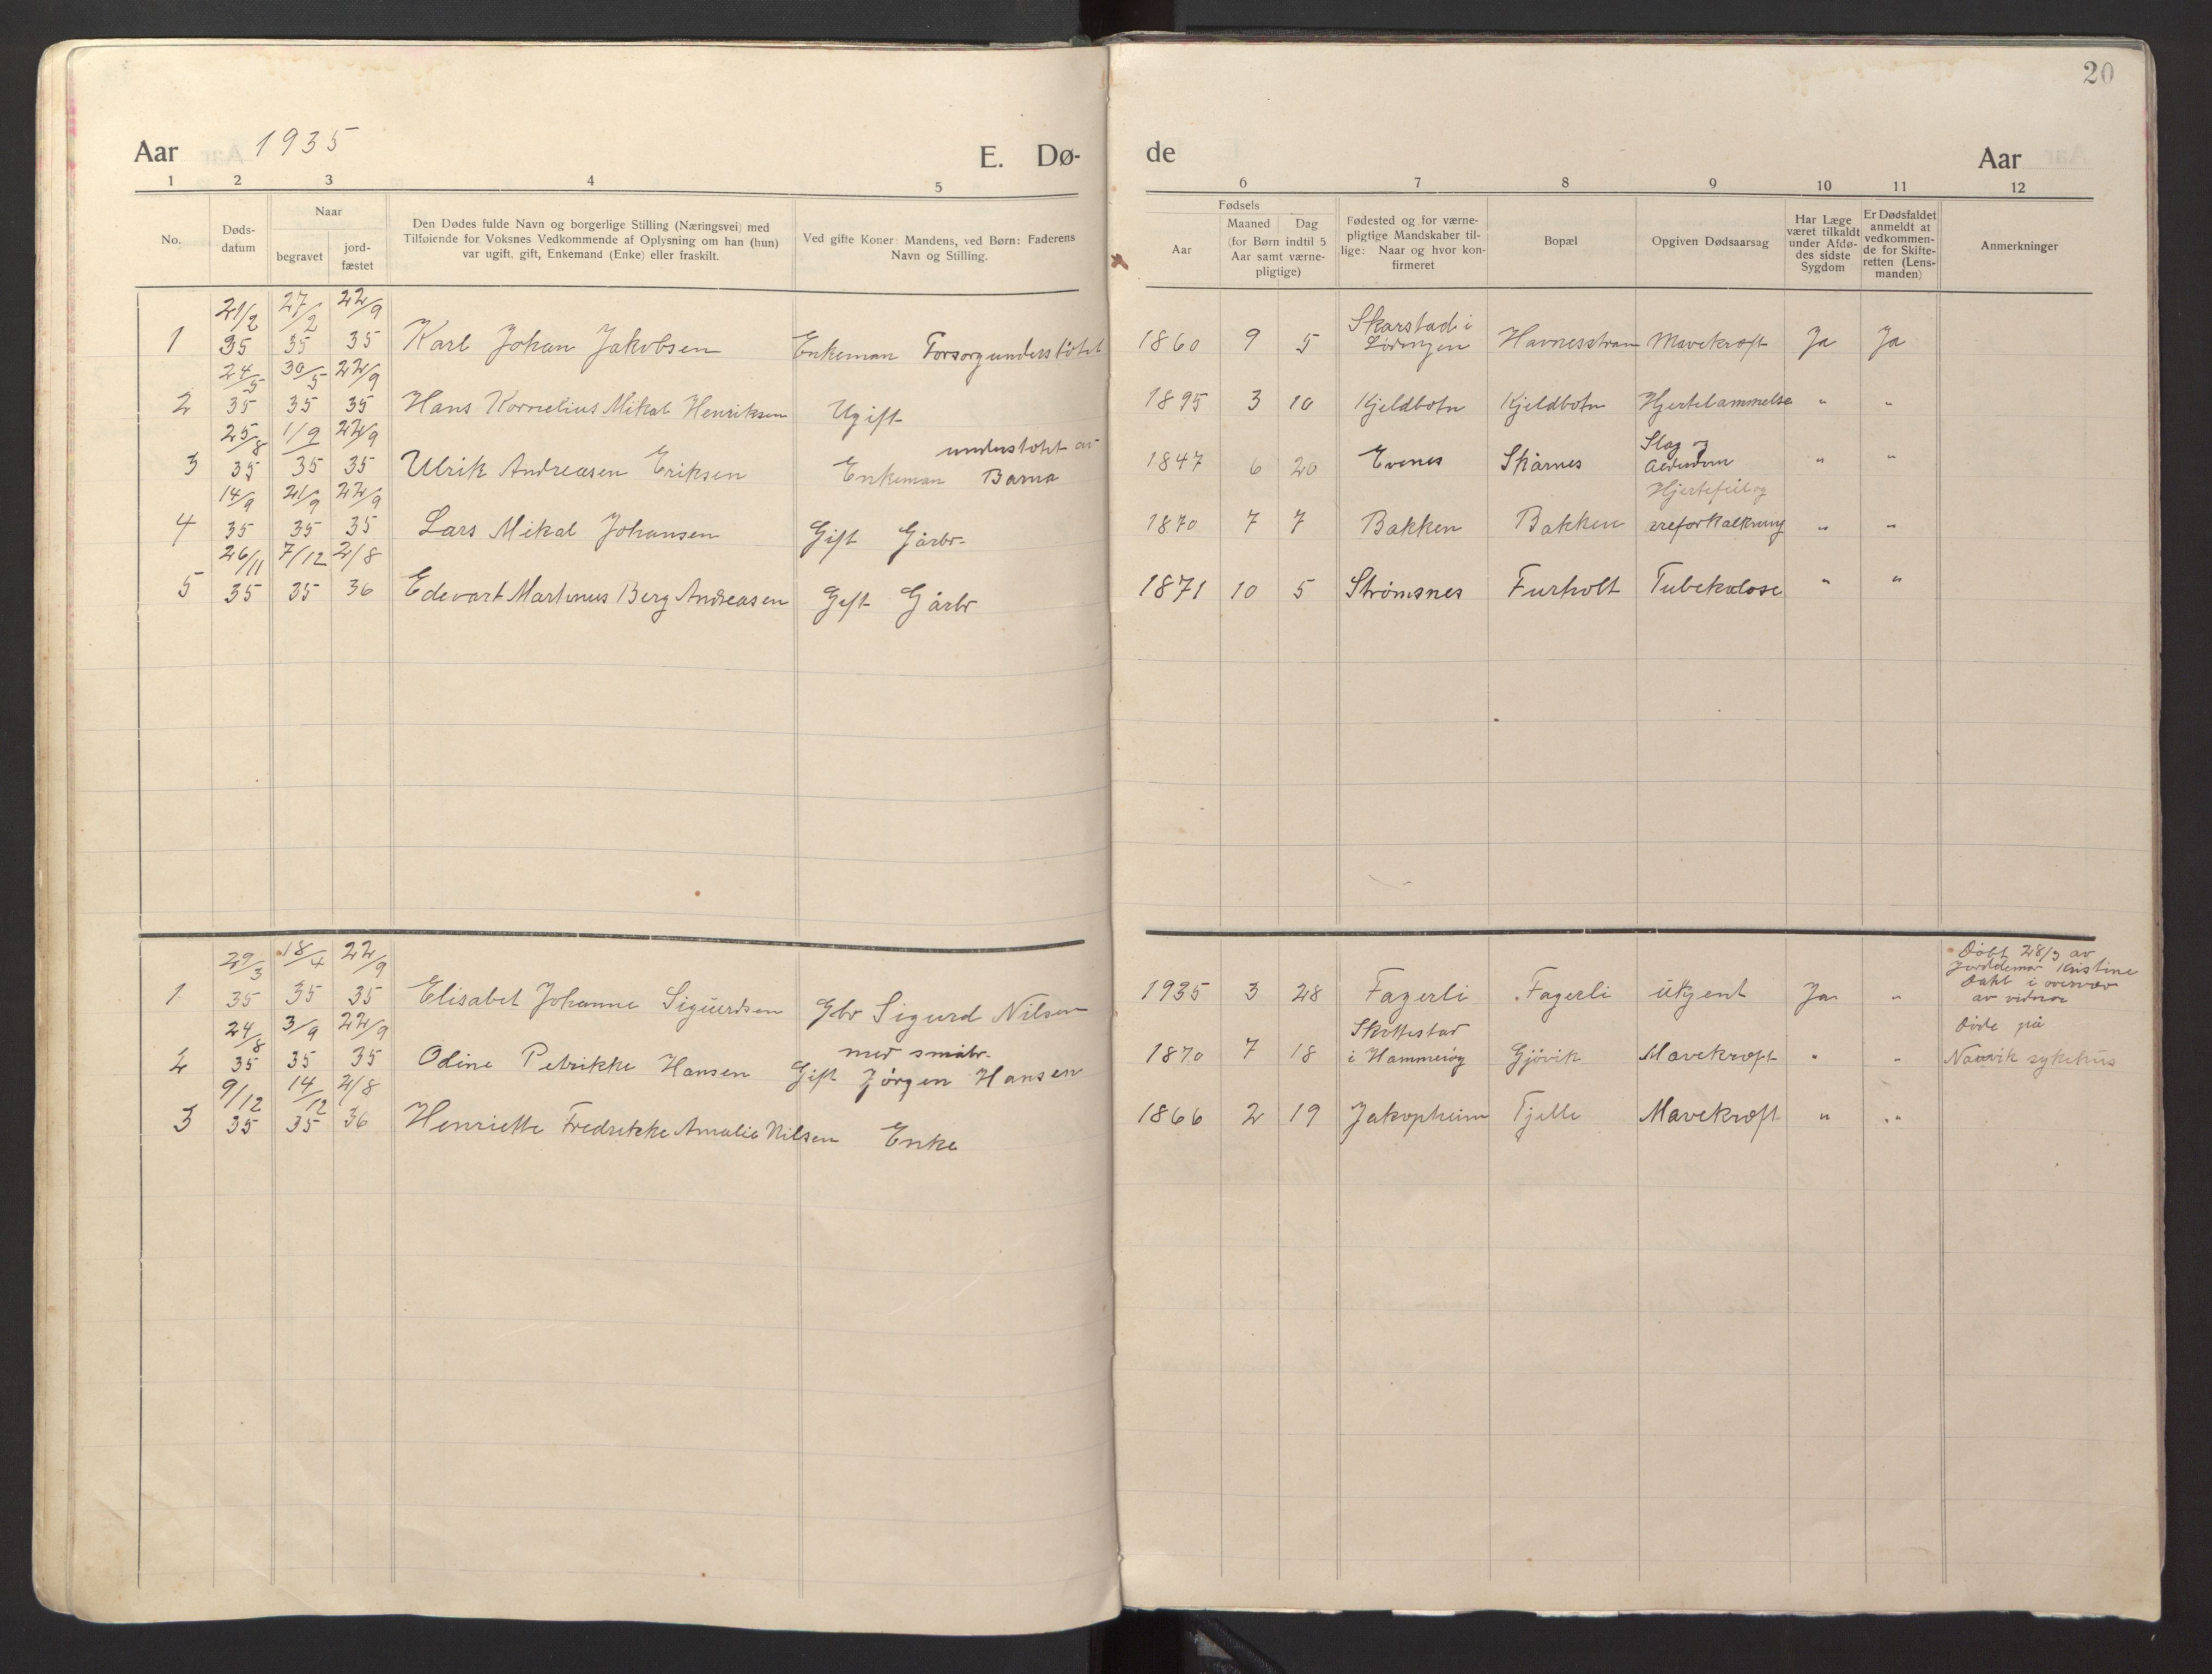 20
Aar 1935 E. Dø-
de Aar
1 2 3 4 5
6 7 8 9 10 11 12
No.
Døds-
datum
Naar
begravet
jord-
fæstet
Den Dødes fulde Navn og borgerlige Stilling (Næringsvei) med
Tilføiende for Voksnes Vedkommende af Oplysning om han (hun)
var ugift, gift, Enkemand (Enke) eller fraskilt.
Ved gifte Koner: Mandens, ved Børn: Faderens
Navn og Stilling.
Fødsels
Aar
Maaned Dag
(for Børn indtil 5
Aar samt værne-
pligtige)
Fødested og for værne-
pligtige Mandskaber til-
lige: Naar og hvor kon-
firmeret
Bopæl
Opgiven Dødsaarsag
Har Læge
været tilkaldt
under Afdø-
des sidste
Sygdom
Er Dødsfaldet
anmeldt at
vedkommen-
de for Skifte-
retten (Lens-
manden)
Anmerkninger
21/2 27/2 22/9 Skarstad i
1 35 35 35 Karl Johan Jakobsen Enkeman Forsorgunderstøtet 1860 9 5 Lødingen Havnesstran Mavekræft Ja Ja
24/5 30/5 22/9
2 35 35 35 Hans Kornelius Mikal Henriksen Ugift 1895 3 10 Kjeldbotn Kjeldbotn Hjertelammelse " "
25/8 1/9 22/9 understøtet av Slag og
3 35 35 35 Ulrik Andreasen Eriksen Enkeman Barna 1847 6 20 Evenes Skårnes Alderdom " "
14/9 21/9 22/9 Hjertefeil og
4 35 35 35 Lars Mikal Johansen Gift Gårbr. 1870 7 7 Bakken Bakken åreforkalkning " "
26/11 7/12 2/8
5 35 35 36 Edevart Martinus Berg Andreasen Gift Gårbr 1871 10 5 Strømsnes Furholt Tubekulose " "
29/3 18/4 22/9 Døbt 28/3 av
Jorddemor Kristine
1 35 35 35 Elisabet Johanne Sigurdsen Gbr Sigurd Nilsen 1935 3 28 Fagerli Fagerli ukjent Ja "
Dahl i overvær
av vidner
24/8 3/9 22/9 med småbr. Skottestad Døde på
2 35 35 35 Odine Petrikke Hansen Gift Jørgen Hansen 1870 7 18 i Hammerøy Gjøvik Mavekræft " " Narvik sykehus
9/12 14/12 2/8
3 35 35 36 Henriette Fredrikke Amalie Nilsen Enke 1866 2 19 Jakopheim Tjelle Mavekræft " "